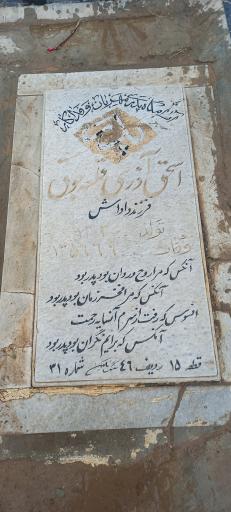 آرامگاه پدری مهربان و فداکار
اسحق آذری خسروق
فرزند داداش
تولد
وفات ۱۳۵۶٫۶٫۹
آنکس که مرا روح و روان بود پدر بود
آنکس که مرا فخر زمان بود پدر بود
افسوس که رفت از سرم آن سایه رحمت
آنکس که برایم نگران بود پدر بود
قطعه ۱۵ ردیف ۴۶ شماره ۳۱